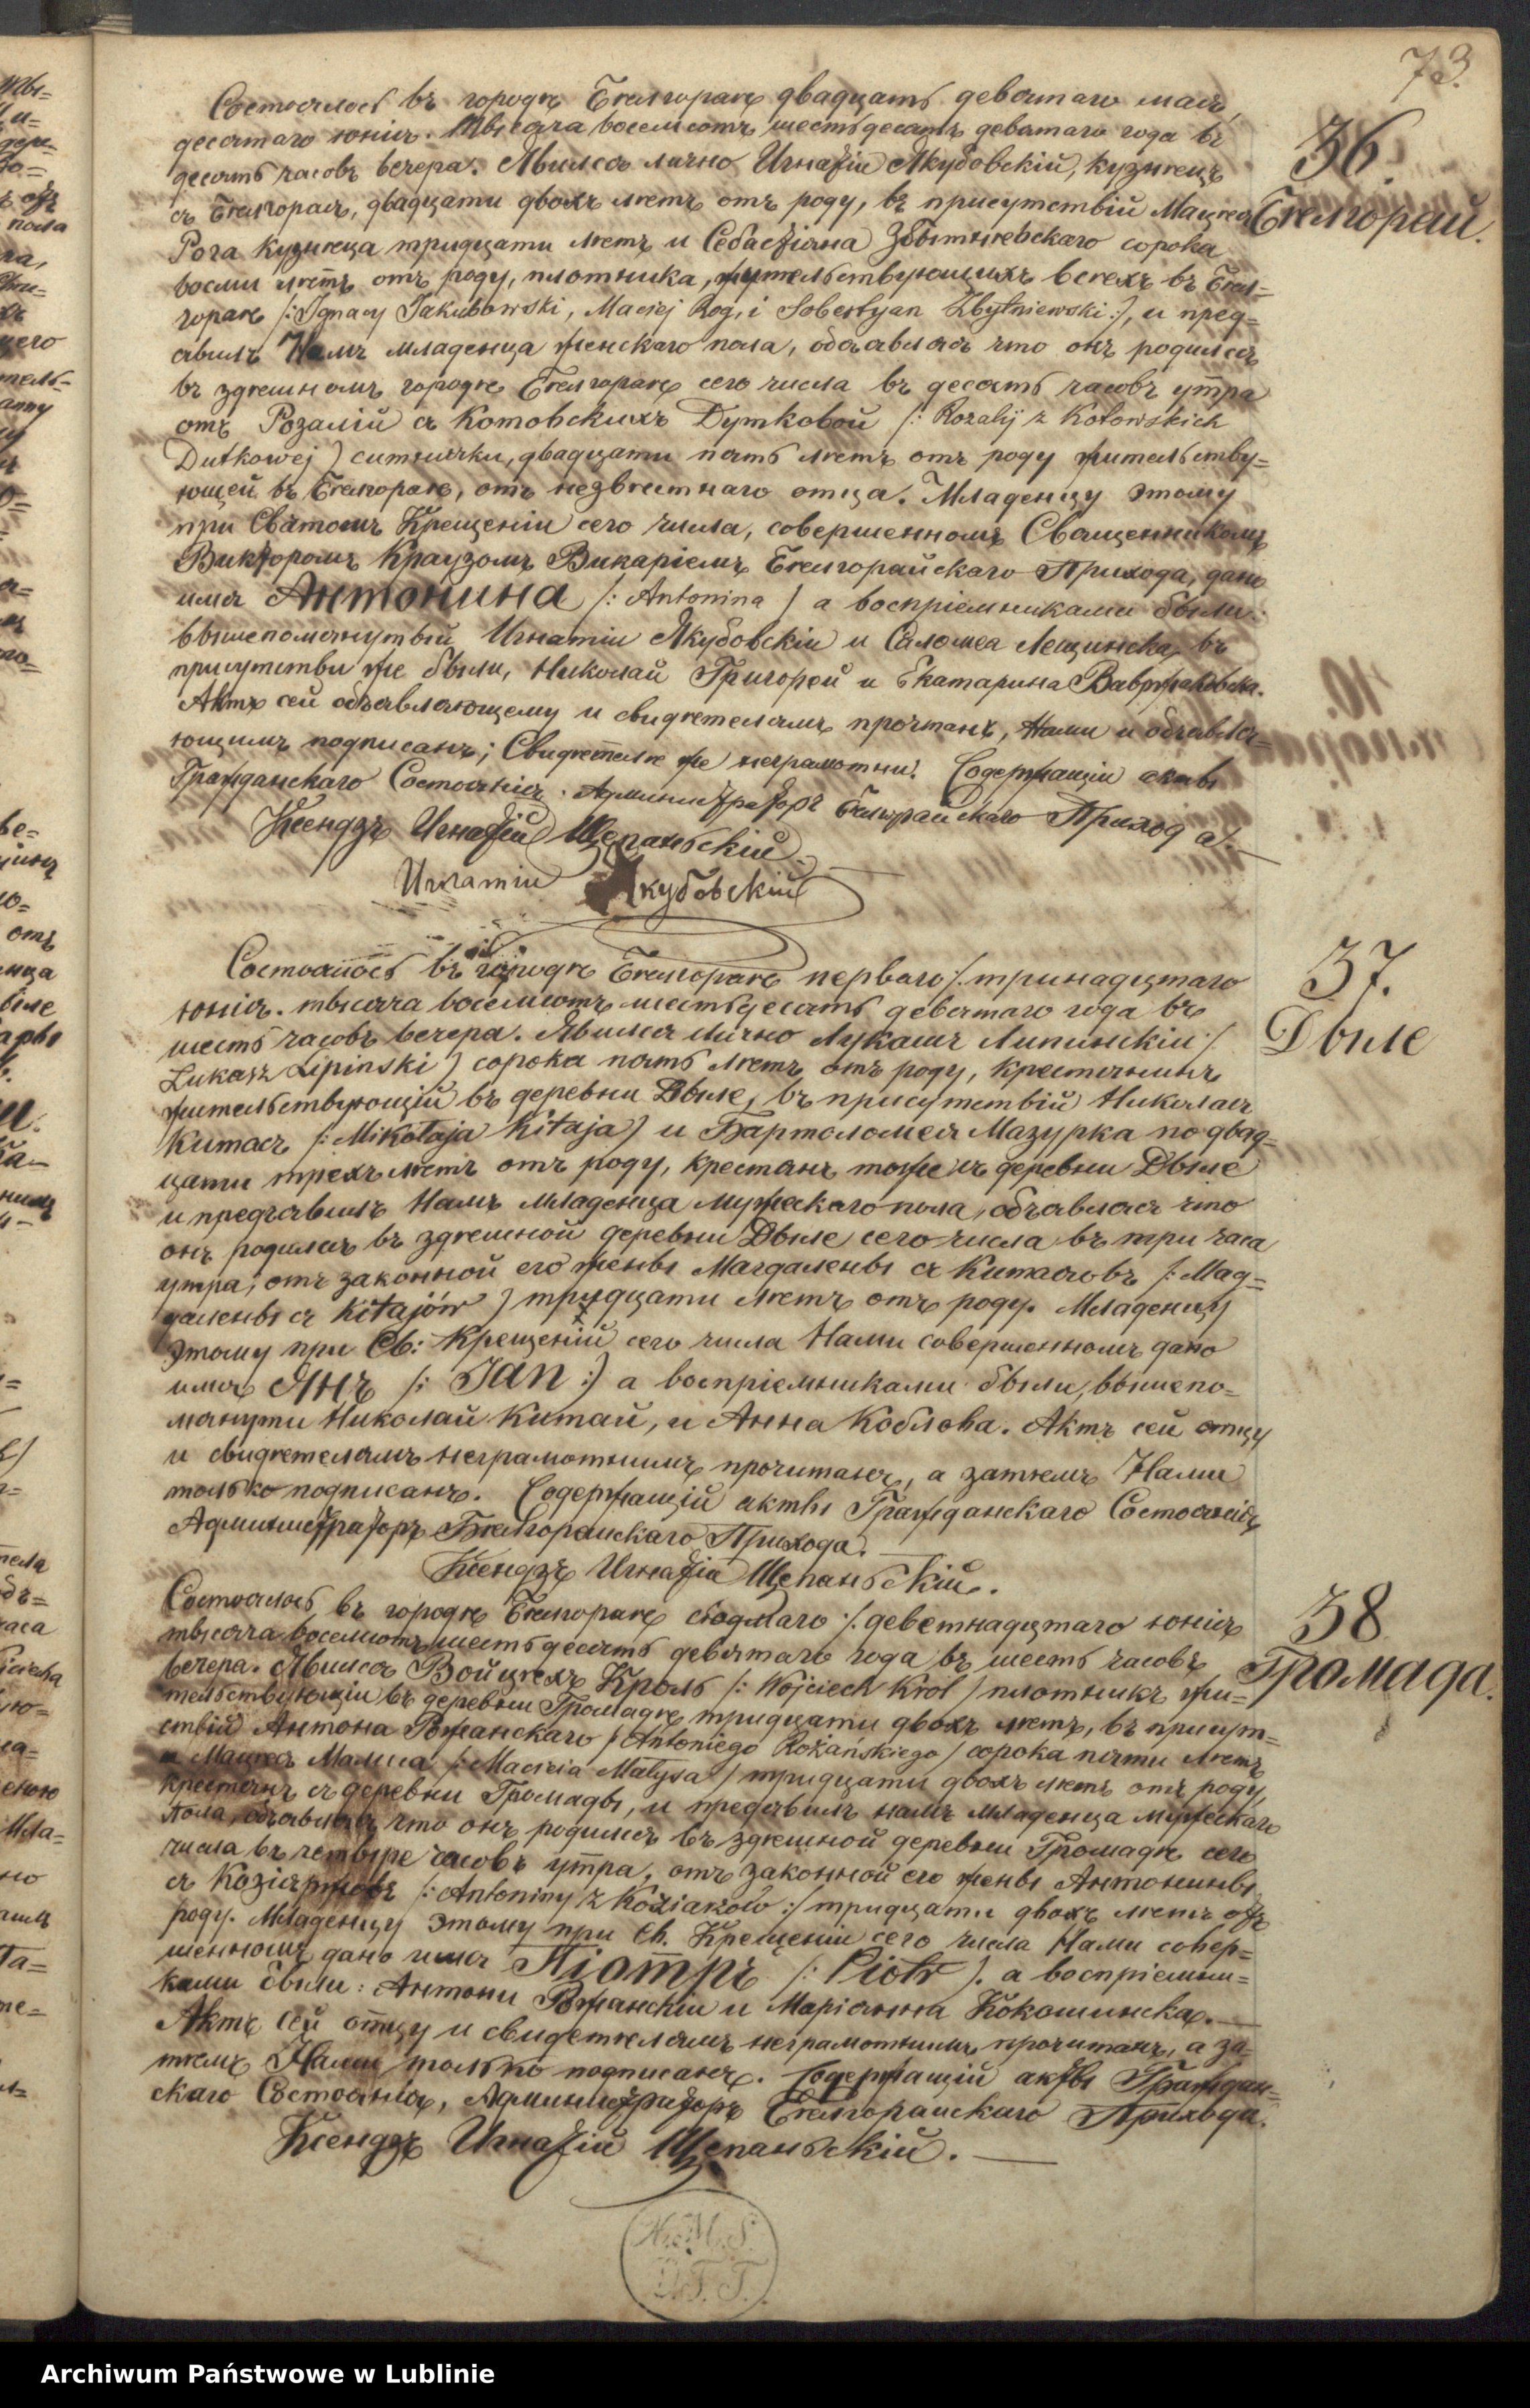 73.
36.
Белгорай.
Состоялось въ городѣ Белгораѣ двадцать девятаго мая,
десятаго юнія. тысяча восемсотъ шестьдесятъ девятаго года въ
десять часовъ вечера. Явился лично Игнатій Якубовскій, кузнецъ
съ Белгорая, двадцати двохъ лѣтъ отъ роду, въ присутствій Мацѣя
Рога кузнеца тридцати лѣтъ и Себастіяна Збытневскаго сорока
восми лѣтъ отъ роду, плотника, жительствующихъ всѣхъ въ Бел=
гораѣ /: Ignacy Jakubowski, Maciej Rog, i Sobestyan Zbytniewski :/, и пред=
ъявилъ Намъ младенца женскаго пола, объявляя что онъ родился
въ здешномъ городѣ Белгораѣ сего числа въ десять часовъ утра
отъ Розалій съ Котовскихъ Дутковой /: Rozalij z Kotowskich
Dutkowej ) ситнички, двадцати пять лѣтъ отъ роду жительству=
ющей въ Белгораѣ, отъ незвестнаго отца. Младенцу этому
при Святомъ Крещеніи сего числа, совершенномъ Священникомъ
Викторомъ Краузомъ Викаріемъ Белгорайскаго Прихода, дано
имя Антонина /: Antonina ) а воспріемниками были:
вышепомянутый Игнатіи Якубовскіи и Саломея Лещинска, въ
присутстви же были, Николай Григорой и Екатарина
Актъ сей объявляющему и свидетелямъ прочтанъ, Нами и объявля=
ющимъ подписанъ; Свидетеле же неграмотни. Содержащіи акты
Гражданскаго Состоянія. Администраторъ Белгорайскаго Прихода.
Ксендзъ Игнатій Щепаньскій
Игнатіи Якубовскій
37.
Дыле
Состоялось въ городѣ Белгораѣ перваго /. тринадцтаго
юнія. тысяча восемсотъ шестьдесять девятаго года въ
шесть часовъ вечера. Явился лично Лукашъ Липинскіи /:
Łukasz Lipinski ) сорока пять лѣтъ отъ роду, крестянинъ
жительствующій въ деревни Дыле, въ присутствій Николая
Китая /: Mikołaja Kitaja ) и Бартоломея Мазурка по двад=
цати трехъ лѣтъ отъ роду, крестянъ тоже съ деревни Дыле
и предъявилъ Намъ младенца мужескаго пола, объявляя что
онъ родился въ здешной деревни Дыле сего числа въ три часа
утра, отъ законной его жены Магдалены съ Китаювъ /: Маg=
далены съ Kitajów ) тридцати лѣтъ отъ роду. Младенцу
этому при Св: Крещеній сего числа Нами совершенномъ дано
имя Янъ /: Jan :) а воспріемниками были, вышепо=
мянути Николай Китай, и Анна Коблова. Актъ сей отцу
и свидетелямъ неграмотнимъ прочитанъ, а затѣмъ Нами
только подписанъ. Содержащій акты Гражданскаго Состоянія
Администраторъ Белгорайскаго Прихода.
Ксендзъ Игнатіи Щепаньскій.
38
Громада.
Состоялось въ городѣ Белгораѣ сѣдмаго /. деветнадцтаго юнія
тысяча восемсотъ шестьдесять девятаго года въ шесть часовъ
вечера. Явился Войцѣхъ Кроль /: Wojciech Krol / плотникъ жи=
тельствующіи въ деревни Громадѣ, тридцати двохъ лѣтъ, въ присут=
ствій Антона Рожанскаго / Antoniego Rożańskiego / сорока пяти лѣтъ
и Мацѣя Малыса /: Macieia Małysa / тридцати двохъ лѣтъ отъ роду,
крестянъ съ деревни Громады, и предъявилъ намъ младенца мужескаго
пола, объявляя что онъ родился въ здешной деревни Громадѣ сего
числа въ четыре часовъ утра, отъ законной его жены Антонины
съ /: Antoniny z Koziarów :/ тридцати двохъ лѣтъ отъ
роду. Младенцу этому при Св. Крещеніи сего числа Нами совер=
шенномъ дано имя Піотръ /: Piotr ). а воспріемни=
ками были: Антони Рожанскіи и Маріянна Кокошинска.
Актъ сей отцу и свидетелямъ неграмотнимъ прочитанъ, а за=
тѣмъ Нами только подписанъ. Содержащій акты Граждан=
скаго Состоянія, Администраторъ Белгорайскаго Прихода.
Ксендзъ Игнатій Щепаньскій.
Archiwum Państwowe w Lublinie